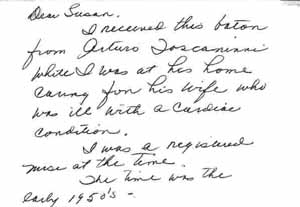 Dear Susan.
I received this baton
from Arturo Toscaninni
while I was at his home
caring for his wife who
was ill with a cardiac
condition.
I was a registered
nurse at the time.
The time was the
early 1950's -